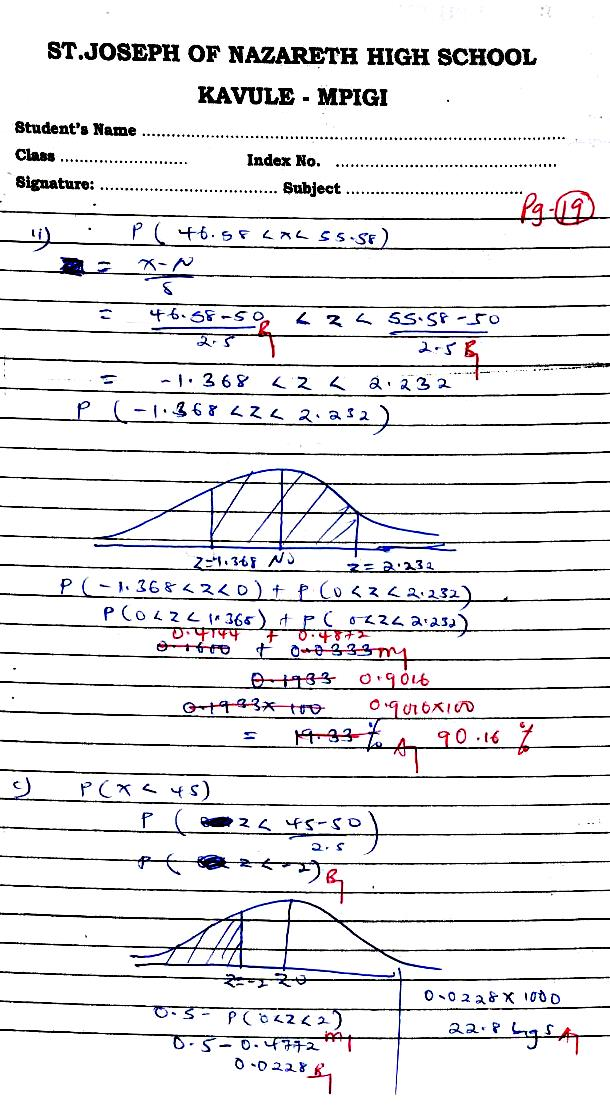 ST.JOSEPH OF NAZARETH HIGH SCHOOL
KAVULE - MPIGI
Student's Name ........................................................................
Class ........................ Index No. ..........................................
Signature: ................................ Subject .................................
Pg-19
ii) P( 46.58 < x < 55.58)
= x-N / δ
= 46.58-50 / 2.5 B1 < z < 55.58-50 / 2.5 B1
= -1.368 < z < 2.232
P (-1.368 < z < 2.232)
z=-1.368 N0 z = 2.232
P(-1.368 < z < 0) + P(0 < z < 2.232)
P(0 < z < 1.368) + P( 0 < z < 2.232)
0.4144 + 0.4872
0.1600 + 0.0333 m1
0.1933 0.9016
0.1933 x 100 0.9016x100
= 19.33 % A1 90.16 %
c) P(x < 45)
P ( z < 45-50 / 2.5 )
P ( z < -2) B1
z=-2 z0
0.5 - P(0<z<2)
0.5 - 0.4772 m1
0.0228 B1
0.0228 x 1000
22.8 kgs A1